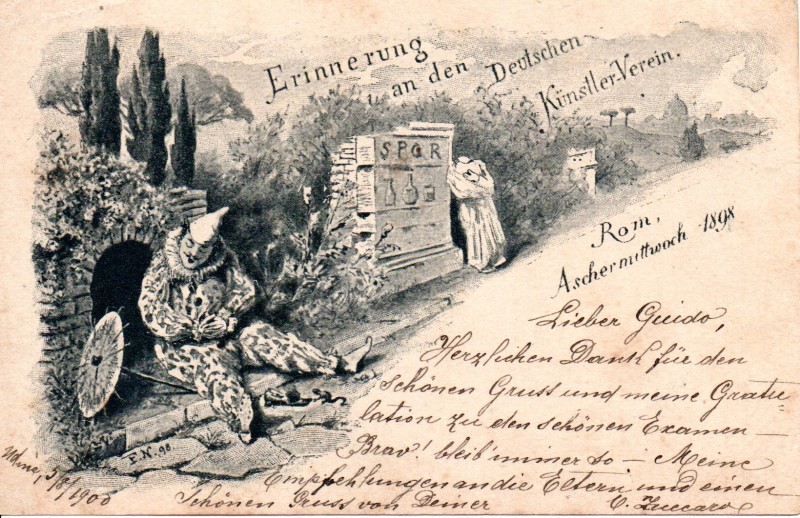 Erinnerung
an den Deutschen
Künstler-Verein.
SPQR
Rom,
Aschermittwoch 1898
Lieber Guido,
Herzlichen Dank für den
schönen Gruss und meine Gratu-
lation zu den schönen Examen –
Brav! bleib immer so – Meine
Empfehlungen an die Eltern und einen
Schönen Gruss von Deiner
C. Zuccaro
F.N. 98
1900